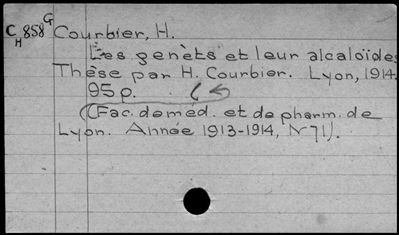 C 858 G Courbier, H.
H
Les genêts et leur alcaloïdes
Thèse par H. Courbier. Lyon, 1914.
95 p.
(Fac. de méd. et de pharm. de
Lyon. Année 1913-1914, N 71).